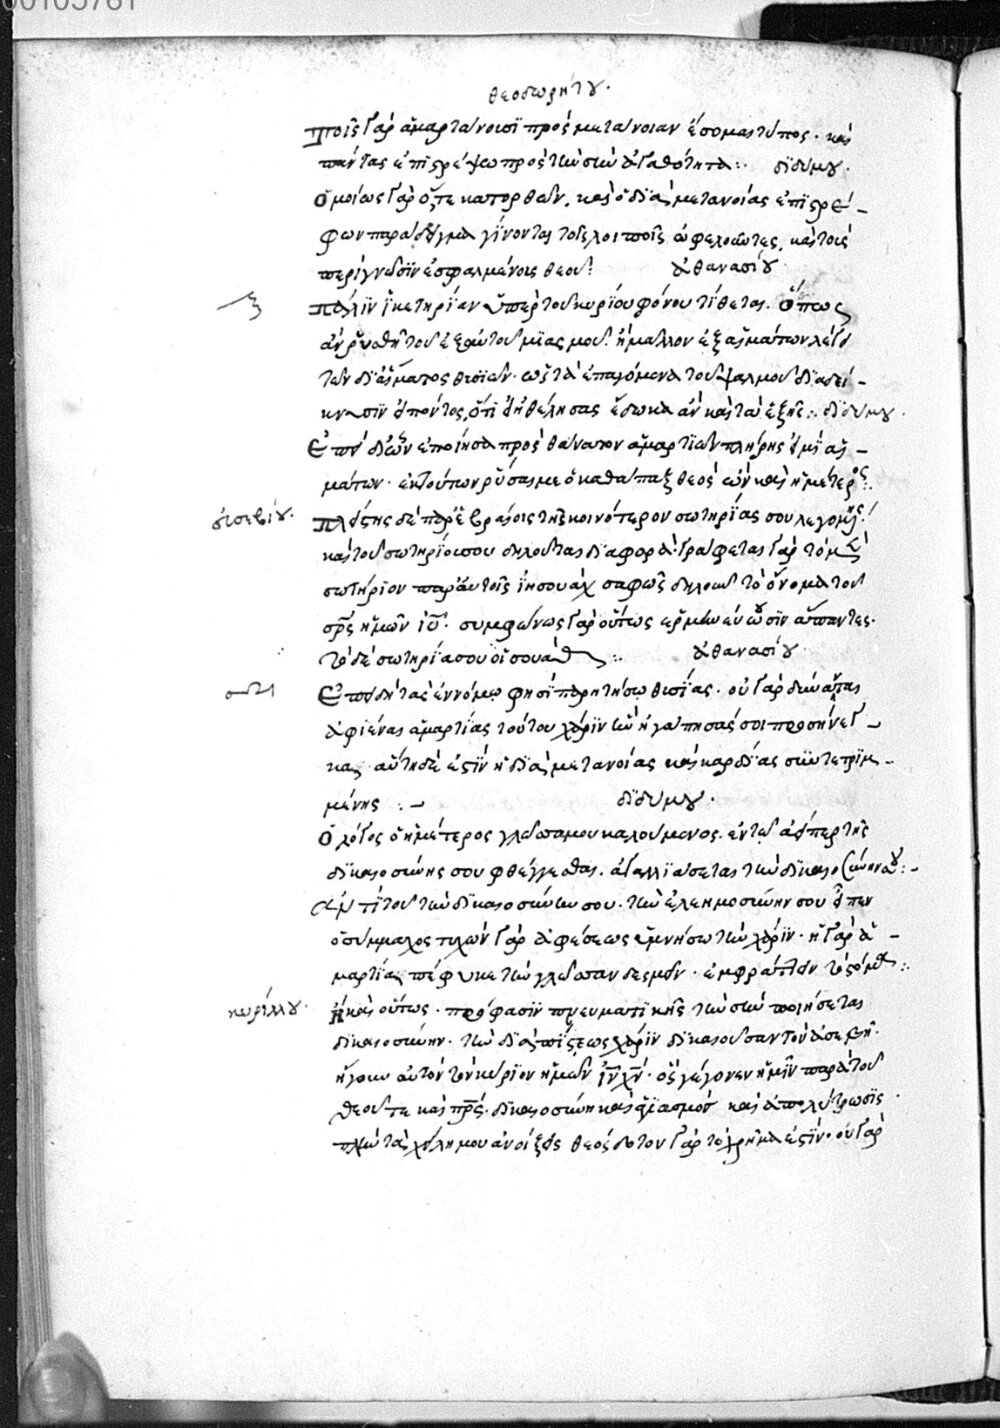 00105781
θεοδωρήτου.
Τοῖς γὰρ ἁμαρτάνουσι πρὸς μετάνοιαν ἔσομαι τύπος. καὶ
πάντας ἐπιστρέψω πρὸς τὴν σὴν ἀγαθότητα :. διδύμου.
Ὁμοίως γὰρ ὅ,τε κατορθῶν, καὶ ὁ διὰ μετανοίας ἐπιστρέ-
φων παράδειγμα γίνονται τοῖς λοιποῖς ὠφελοῦντες, καὶ τοῖς
περὶ γνῶσιν ἐσφαλμένοις θεοῦ: ἀθανασίου
Πάλιν ἱκετηρίαν ὑπὲρ τοῦ κυρίου φόνου τίθεται. ὅπως
ἂν ῥυσθῇ τοῦ ἐξ αὐτοῦ μιάσμου. ἢ μᾶλλον ἐξ αἱμάτων λέγει
τῶν δι' αἵματος θυσιῶν. ὡς τὰ ἐπαγόμενα τοῦ ψαλμοῦ διαδεί-
κνυσιν εἰπόντος, ὅτι εἰ ἠθέλησας ἔδωκα ἂν καὶ τὰ ἑξῆς :. διδύμου.
Ἐπεὶ δι' ὧν ἐποίησα πρὸς θάνατον ἁμαρτιῶν πλήρης εἰμὶ αἱ-
μάτων. ἐκ τούτων ῥῦσαί με ὁ καθάπαξ θεὸς ὢν καὶ ἡμέτερος :.
εὐσεβίου. Πλείστης δὲ παρ' ἑβραίοις τῆς κοινότερον σωτηρίας σου λεγομένης.
καὶ τοῦ σωτηρίου σου δηλοῦται διαφορά. γράφεται γὰρ τὸ μὲν
σωτήριον παρ' αὐτοῖς ἰησουὰχ σαφῶς δηλοῦν τὸ ὄνομα τοῦ
σρς ἡμῶν ἰυ. συμφώνως γὰρ οὕτως ἑρμηνεύουσιν ἅπαντες.
τὸ δὲ σωτηρία σου οἱσουάθ :. ἀθανασίου
Ἐπειδὴ τὰς ἐννόμῳ φησὶ παρῃτήσω θυσίας. οὐ γὰρ δύνανται
ἀφιέναι ἁμαρτίας τούτου χάριν ἣν ἠγάπησας σοι προσήνεγ-
κα. αὕτη δέ ἐστιν ἡ διὰ μετανοίας καὶ καρδίας συντετριμ-
μένης :- διδύμου.
Ὁ λόγος ὁ ἡμέτερος γλῶσσά μου καλούμενος. ἐν τῷ ἀεὶ περὶ τῆς
δικαιοσύνης σου φθέγγεσθαι. ἀγαλλιάσεται τὴν δικαιοσύνην σου :-
Ἀντὶ τοῦ τὴν δικαιοσύνην σου. τὴν ἐλεημοσύνην σου εἶπεν
ὁ σύμμαχος τυχὼν γὰρ ἀφέσεως ὑμνήσω τὴν χάριν. ἡ γὰρ ἁ-
μαρτία πέφυκε τὴν γλῶσσαν δεσμεῖν. ἐμφράττειν τὸ στόμα :.
κυρίλλου. Ἢ καὶ οὕτως. πρόφασιν πνευματικῆς τὴν σὴν ποιήσεται
δικαιοσύνην. τὴν διὰ πίστεως χάριν δικαιοῦσαν τὸν ἀσεβῆ.
ἤγουν αὐτὸν τὸν κύριον ἡμῶν ἰν χν. ὃς γέγονεν ἡμῖν παρὰ τοῦ
θεοῦ τε καὶ πρς. δικαιοσύνη καὶ ἁγιασμὸς καὶ ἀπολύτρωσις.
πλὴν τὰ χείλη μου ἀνοίξεις θεός δοτον γὰρ τὸ χρῆμά ἐστιν. οὐ γὰρ